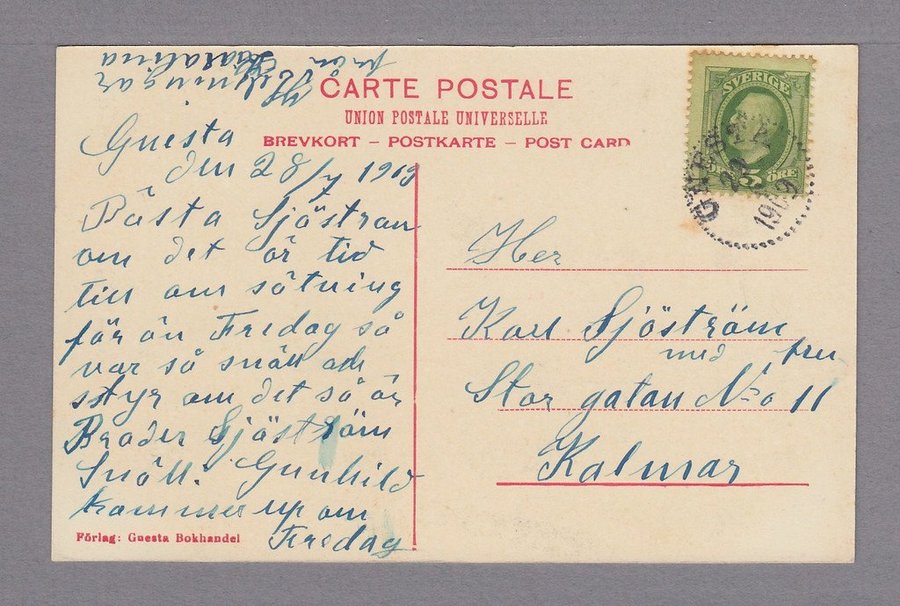 Hälsningar
från Karalina
CARTE POSTALE
UNION POSTALE UNIVERSELLE
BREVKORT – POSTKARTE – POST CARD
Gnesta
den 28/7 1909
Bästa Sjöstran
om det är tid
till om såtning
för än Fredag så
var så snäll och
styr om det så är
Broder Sjöström
Snäll. Gunhild
kommer up om
Fredag
Förlag: Gnesta Bokhandel
SVERIGE
5 ÖRE
GNESTA
1909
Her
Karl Sjöström
med fru
Stor gatan No 11
Kalmar